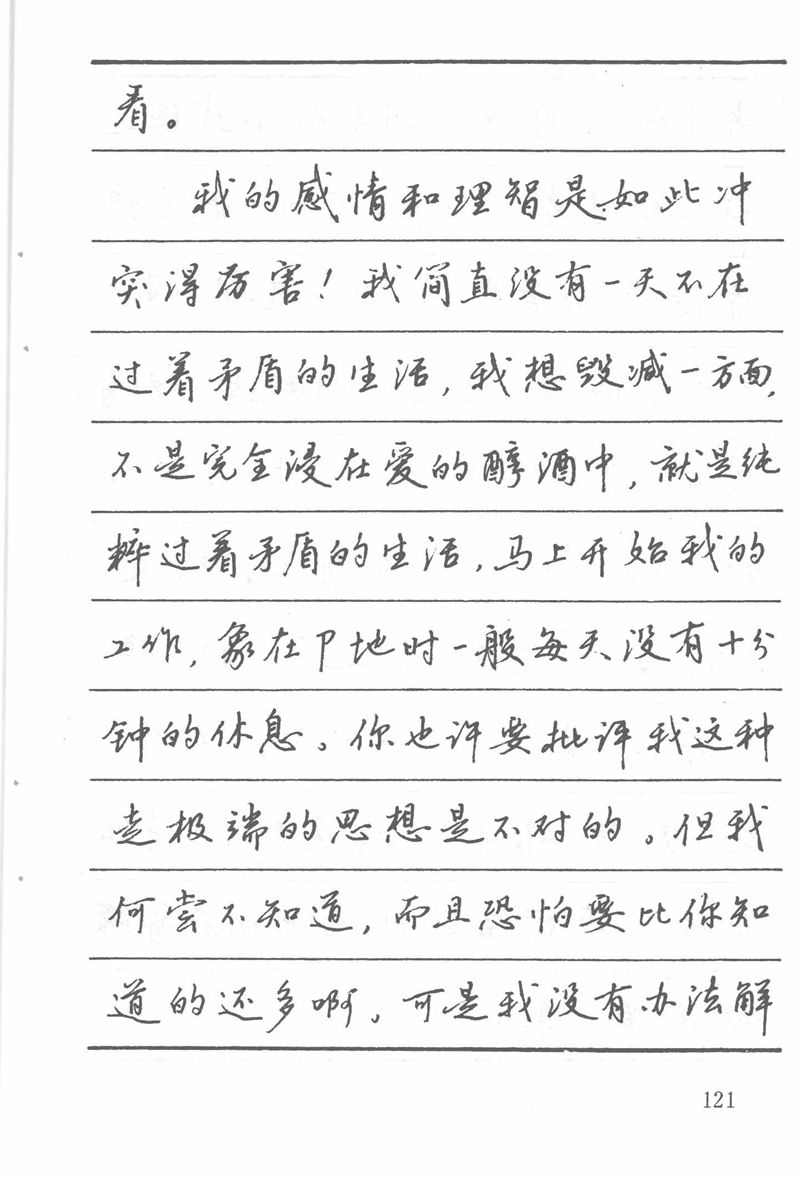 看。
我的感情和理智是如此冲
突得厉害！我简直没有一天不在
过着矛盾的生活，我想毁减一方面，
不是完全浸在爱的醇酒中，就是纯
粹过着矛盾的生活，马上开始我的
工作，象在P地时一般每天没有十分
钟的休息。你也许要批评我这种
走极端的思想是不对的。但我
何尝不知道，而且恐怕要比你知
道的还多啊。可是我没有办法解
121